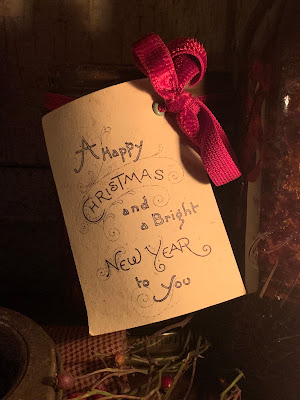 A Happy
CHRISTMAS
and
a Bright
NEW YEAR
to you